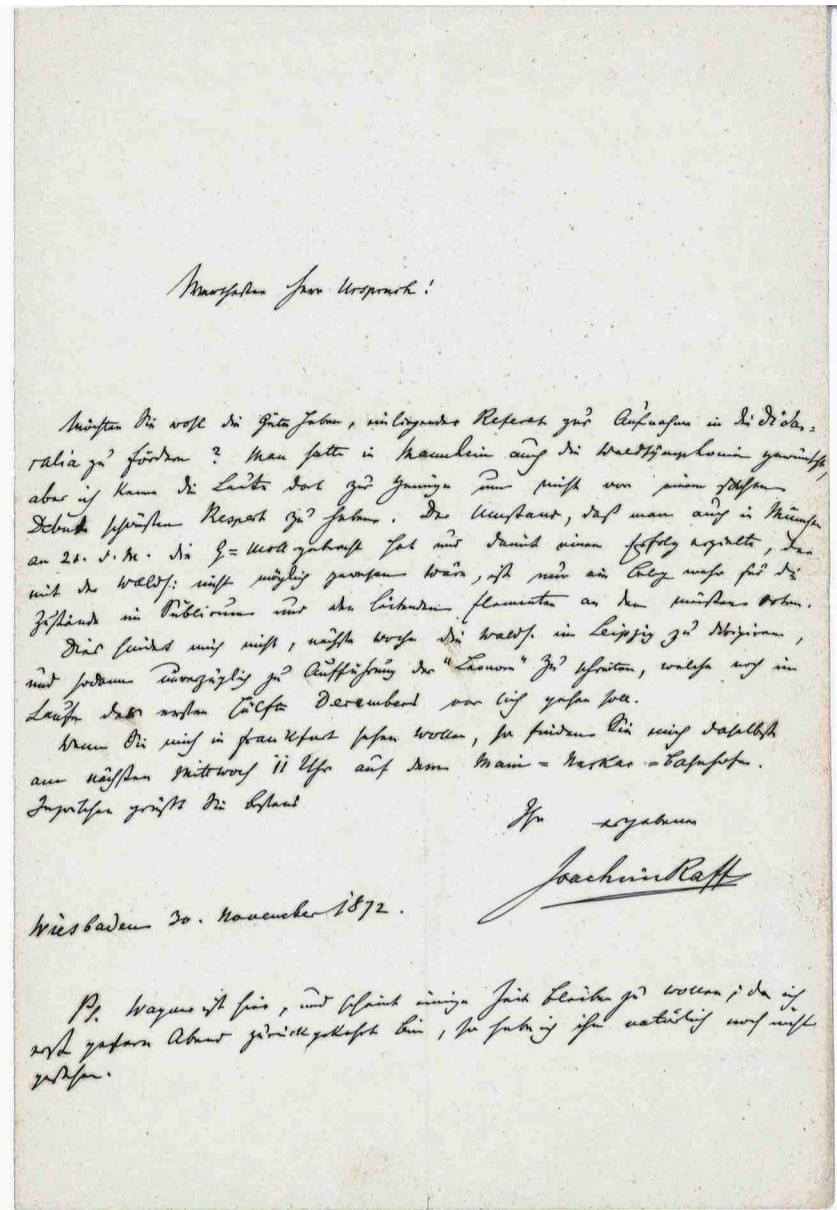 Werthester Herr Urspruch!
Möchten Sie wohl die Güte haben, einliegendes Referat zur Aufnahme in die Didas-
calia zu fördern? Man hatte in Mannheim auch die Waldsymphonie gewünscht,
aber ich kenne die Leute dort zur Genüge um nicht vor einem solchen
Debut schönsten Respect zu haben. Der Umstand, daß man auch in München
an 20. d. M. die G=moll gebracht hat und damit einen Erfolg erzielte, der
mit der Walds: nicht möglich gewesen wäre, ist nur ein Beleg mehr für die
Zustände im Publicum und den leitenden Elementen an den meisten Orten.
Dies hindert mich nicht, nächste Woche die Walds. in Leipzig zu dirigiren,
und sodann unverzüglich zu Aufführung der "Leonore" zu schreiten, welche noch im
Laufe der ersten Hälfte Decembers vor sich gehen soll.
Wenn Sie mich in Frankfurt sehen wollen, so finden Sie mich daselbst
am nächsten Mittwoch 11 Uhr auf dem Main=Neckar=Bahnhofe.
Inzwischen grüßt Sie bestens
Ihr ergebener
Joachim Raff
Wiesbaden 30. November 1872.
Ps. Wagner ist hier, und scheint einige Zeit bleiben zu wollen; da ich
erst gestern Abend zurückgekehrt bin, so habe ich ihn natürlich noch nicht
gesehen.